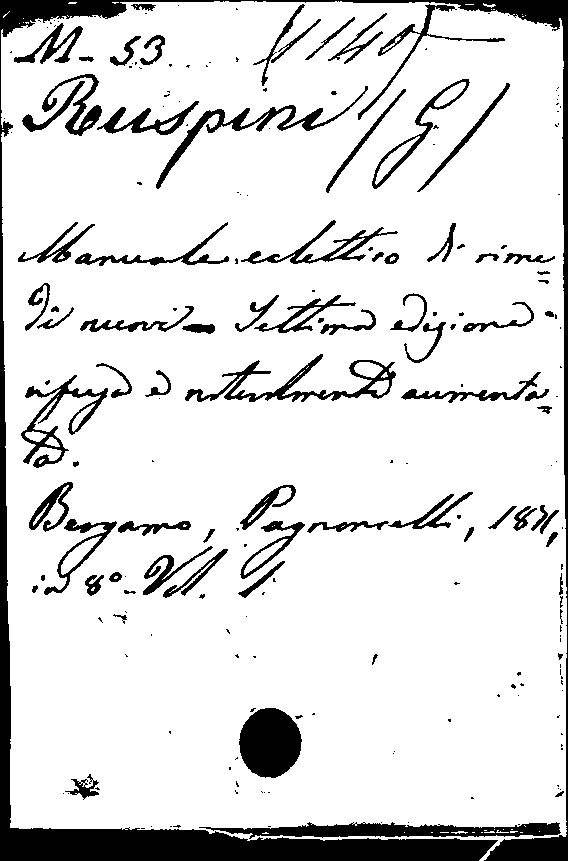 M - 53 (1140)
Ruspini (G)
Manuale eclettico di rime=
di nuovi - Settima edizione
rifusa e notevolmente aumenta=
ta.
Bergamo, Pagnoncelli, 1871,
in 8° - Vol. 1.